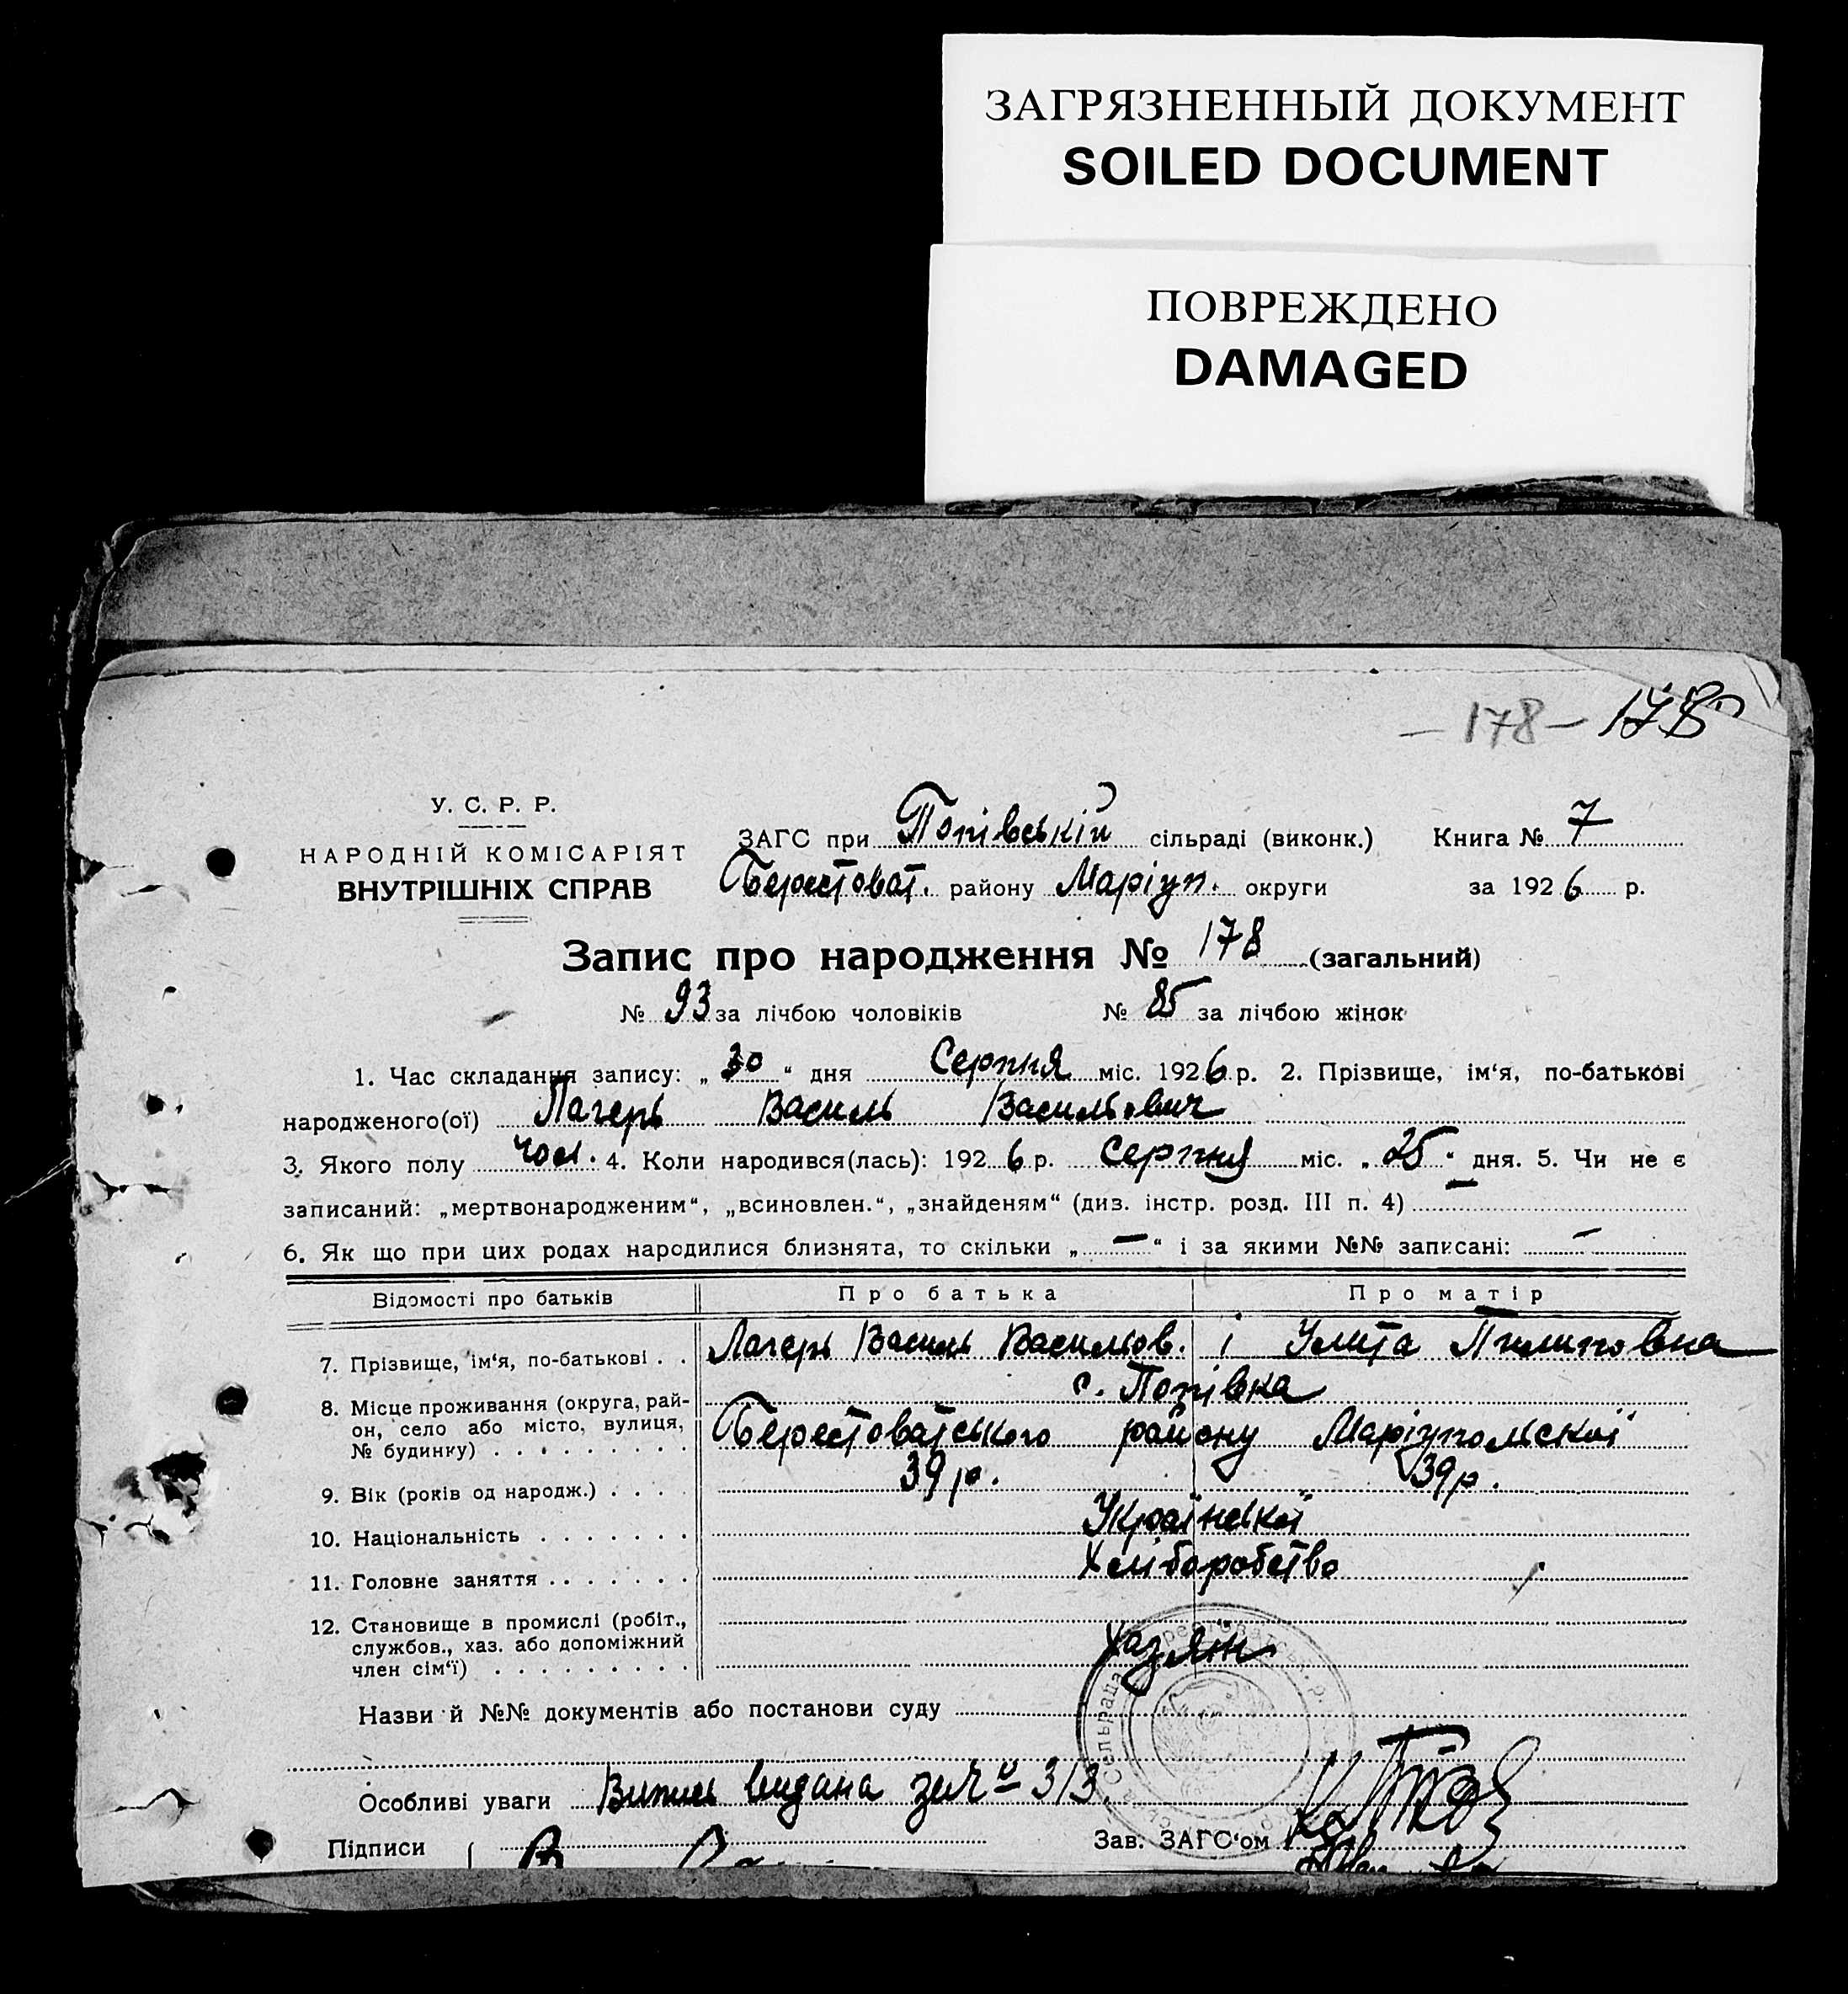 ЗАГРЯЗНЕННЫЙ ДОКУМЕНТ
SOILED DOCUMENT
ПОВРЕЖДЕНО
DAMAGED
— 178 — 178
У. С. Р. Р.
НАРОДНІЙ КОМІСАРІЯТ
ВНУТРІШНІХ СПРАВ
ЗАГС при Попівській сільраді (виконк.) Книга № 7
Берестоват. району Маріуп. округи за 1926 р.
Запис про народження № 178 (загальний)
№ 93 за лічбою чоловіків № 85 за лічбою жінок
1. Час складання запису: „30“ дня Серпня міс. 1926 р. 2. Прізвище, ім‘я, по-батькові
народженого(ої) Лагерь Василь Васильович
3. Якого полу чол. 4. Коли народився(лась): 1926 р. Серпня міс. „25“ дня. 5. Чи не є
записаний: „мертвонародженим“, „всиновлен.“, „знайденям“ (див. інстр. розд. III п. 4) —
6. Як що при цих родах народилися близнята, то скільки „—“ і за якими №№ записані: —
Відомості про батьків Про батька Про матір
7. Прізвище, ім‘я, по-батькові . . Лагерь Василь Васильов. і Улита Пилиповна
8. Місце проживання (округа, рай- с. Попівка
он, село або місто, вулиця,
№ будинку) . . . . . . . . . Берестоватського району Маріупольскої
9. Вік (років од народж.) . . . . 39 р. 39 р.
10. Національність . . . . . . . Української
11. Головне заняття . . . . . . . Хліборобство
12. Становище в промислі (робіт.,
службов., хаз. або допоміжний
член сім‘ї) . . . . . . . . . Хазяін
Назви й №№ документів або постанови суду
Особливі уваги Випись видана за № 313.
Підписи Зав. ЗАГС‘ом